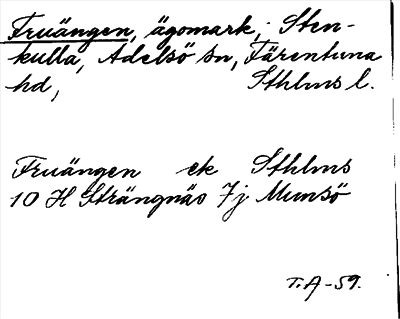 Fruängen, ägomark, Sten-
kulla, Adelsö sn, Färentuna
hd, Sthlms l.
Fruängen ek Sthlms
10 H Strängnäs 7j Munsö
T.A-59.